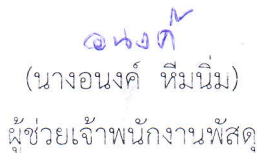 อนงค์
(นางอนงค์ หีมนิ่ม)
ผู้ช่วยเจ้าพนักงานพัสดุ